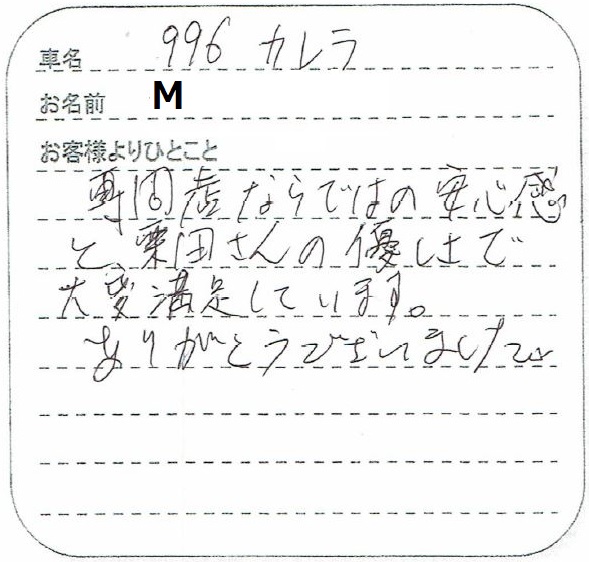 車名 996 カレラ
お名前 M
お客様よりひとこと
専門店ならではの安心感
と、栗田さんの優しさで
大変満足しています。
ありがとうございました。